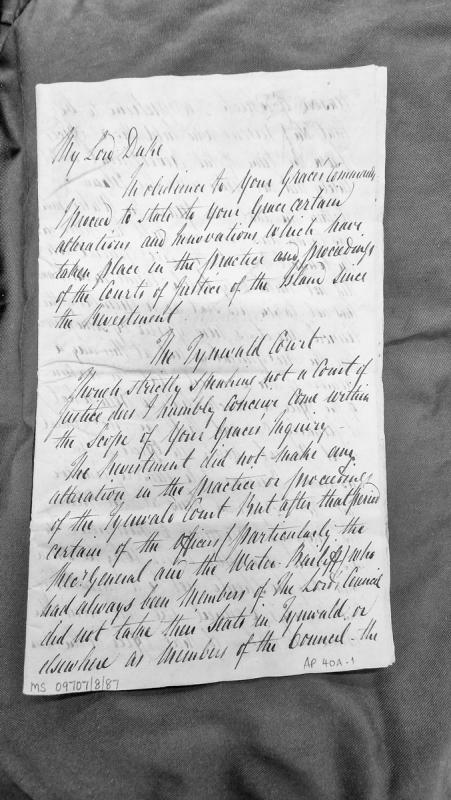 My Lord Duke
In obedience to Your Graces Commands
I proceed to state to Your Grace certain
alterations and Innovations which have
taken place in the practice and proceedings
of the Courts of Justice of the Island since
the Investment
The Tynwald Court
Though strictly speaking not a Court of
Justice does I humbly conceive come within
the Scope of Your Graces Inquiry -
The Investment did not make any
alteration in the practice or proceedings
of the Tynwald Court But after that period
certain of the Officers (particularly the
Recr General and the Water-Bailiff) who
had always been Members of the Lords Council
did not take their Seats in Tynwald or
elsewhere as Members of the Council - the
AP 40A-1
MS 09707/8/87